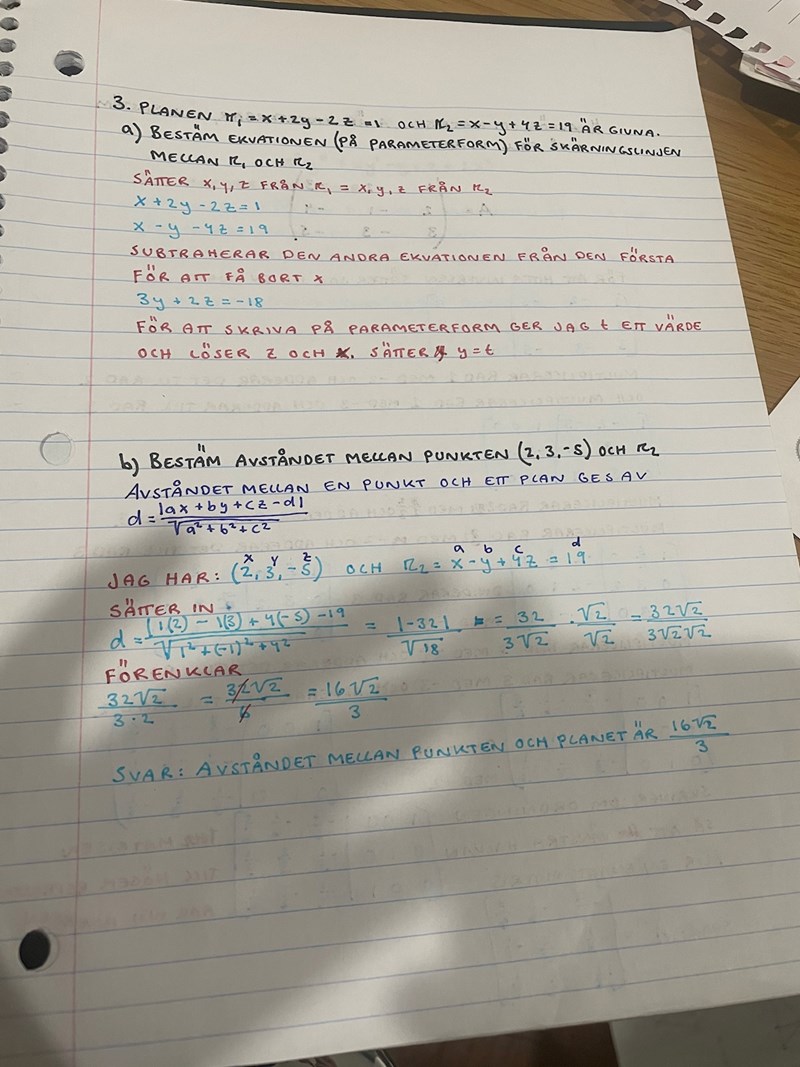 3. PLANEN π₁ = x+2y-2z=1 OCH π₂=x-y+4z=19 ÄR GIVNA.
a) BESTÄM EKVATIONEN (PÅ PARAMETERFORM) FÖR SKÄRNINGSLINJEN
MELLAN π₁ OCH π₂
SÄTTER x,y,z FRÅN π₁ = x,y,z FRÅN π₂
x+2y-2z=1
x-y-4z=19
SUBTRAHERAR DEN ANDRA EKVATIONEN FRÅN DEN FÖRSTA
FÖR ATT FÅ BORT x
3y+2z=-18
FÖR ATT SKRIVA PÅ PARAMETERFORM GER JAG t ETT VÄRDE
OCH LÖSER z OCH x. SÄTTER y=t
b) BESTÄM AVSTÅNDET MELLAN PUNKTEN (2,3,-5) OCH π₂
AVSTÅNDET MELLAN EN PUNKT OCH ETT PLAN GES AV
d = |ax+by+cz-d| / √a²+b²+c²
x y z a b c d
JAG HAR: (2,3,-5) OCH π₂=x-y+4z=19
SÄTTER IN:
d = |1(2)-1(3)+4(-5)-19 / √1²+(-1)²+4² = |-32| / √18 = 32 / 3√2 · √2 / √2 = 32√2 / 3√2√2
FÖRENKLAR
32√2 / 3·2 = 32√2 / 6 = 16√2 / 3
SVAR: AVSTÅNDET MELLAN PUNKTEN OCH PLANET ÄR 16√2 / 3